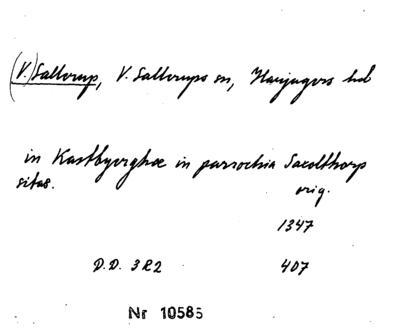 (V.) Sallerup, V. Sallerups sn, Harjagers hd
in Kastbyerghæ in parrochia Saxolthorp
sitas.
orig.
1347
D.D. 3 R 2 407
Nr 10585